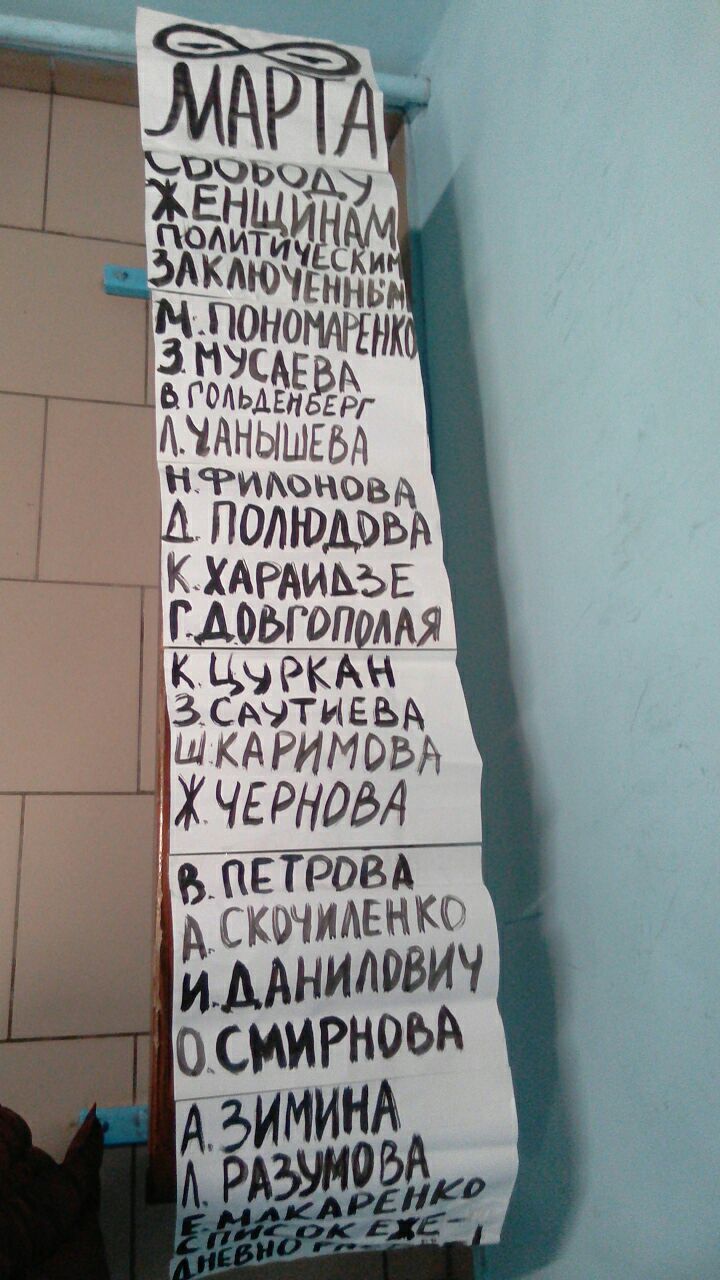 МАРТА
СВОБОДУ
ЖЕНЩИНАМ
ПОЛИТИЧЕСКИМ
ЗАКЛЮЧЕННЫМ
М. ПОНОМАРЕНКО
З. МУСАЕВА
В. ГОЛЬДЕНБЕРГ
Л. ЧАНЫШЕВА
Н. ФИЛОНОВА
Д. ПОЛЮДОВА
К. ХАРАИДЗЕ
Г. ДОВГОПОЛАЯ
К. ЦУРКАН
З. САУТИЕВА
Ш. КАРИМОВА
Ж. ЧЕРНОВА
В. ПЕТРОВА
А. СКОЧИЛЕНКО
И. ДАНИЛОВИЧ
О. СМИРНОВА
А. ЗИМИНА
Л. РАЗУМОВА
Е. МАКАРЕНКО
СПИСОК ЕЖЕ-
ДНЕВНО